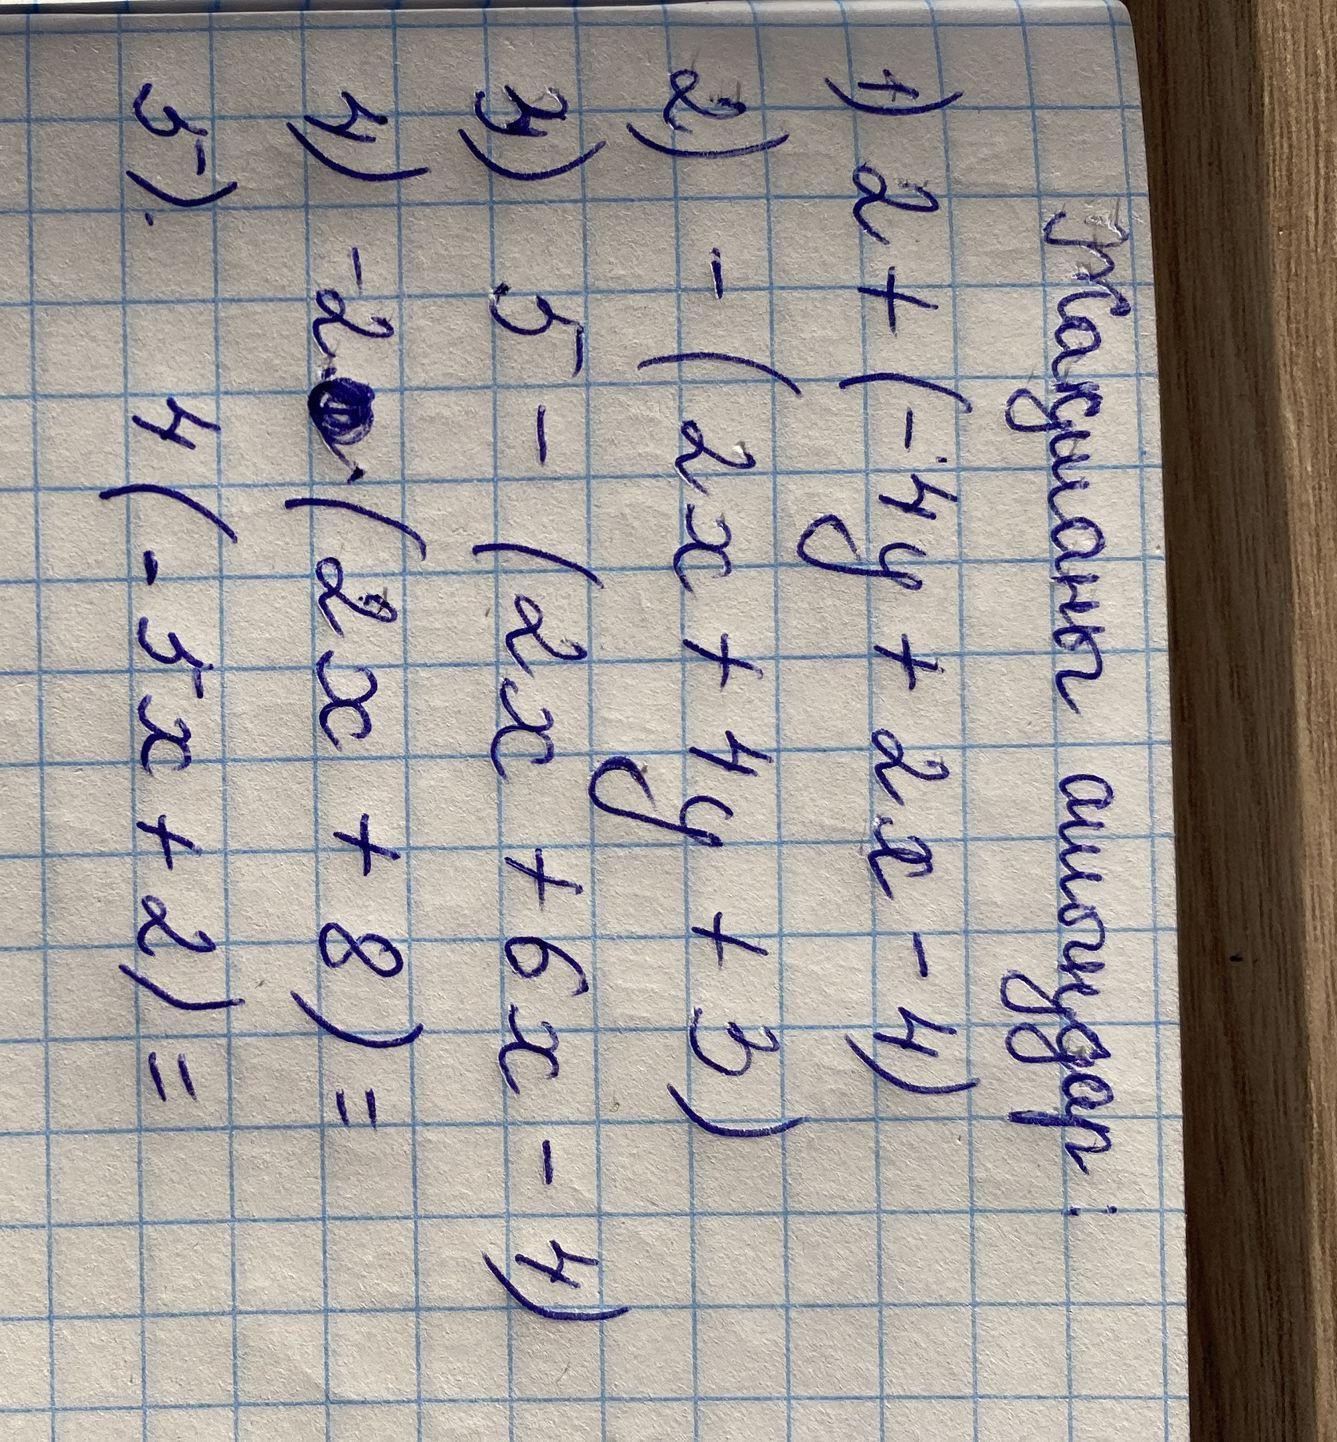 Жакшаны ашыңдар:
1) 2 + (-4y + 2x - 4)
2) - (2x + 4y + 3)
3) 5 - (2x + 6x - 4)
4) -2 · (2x + 8) =
5). 4(-5x + 2) =